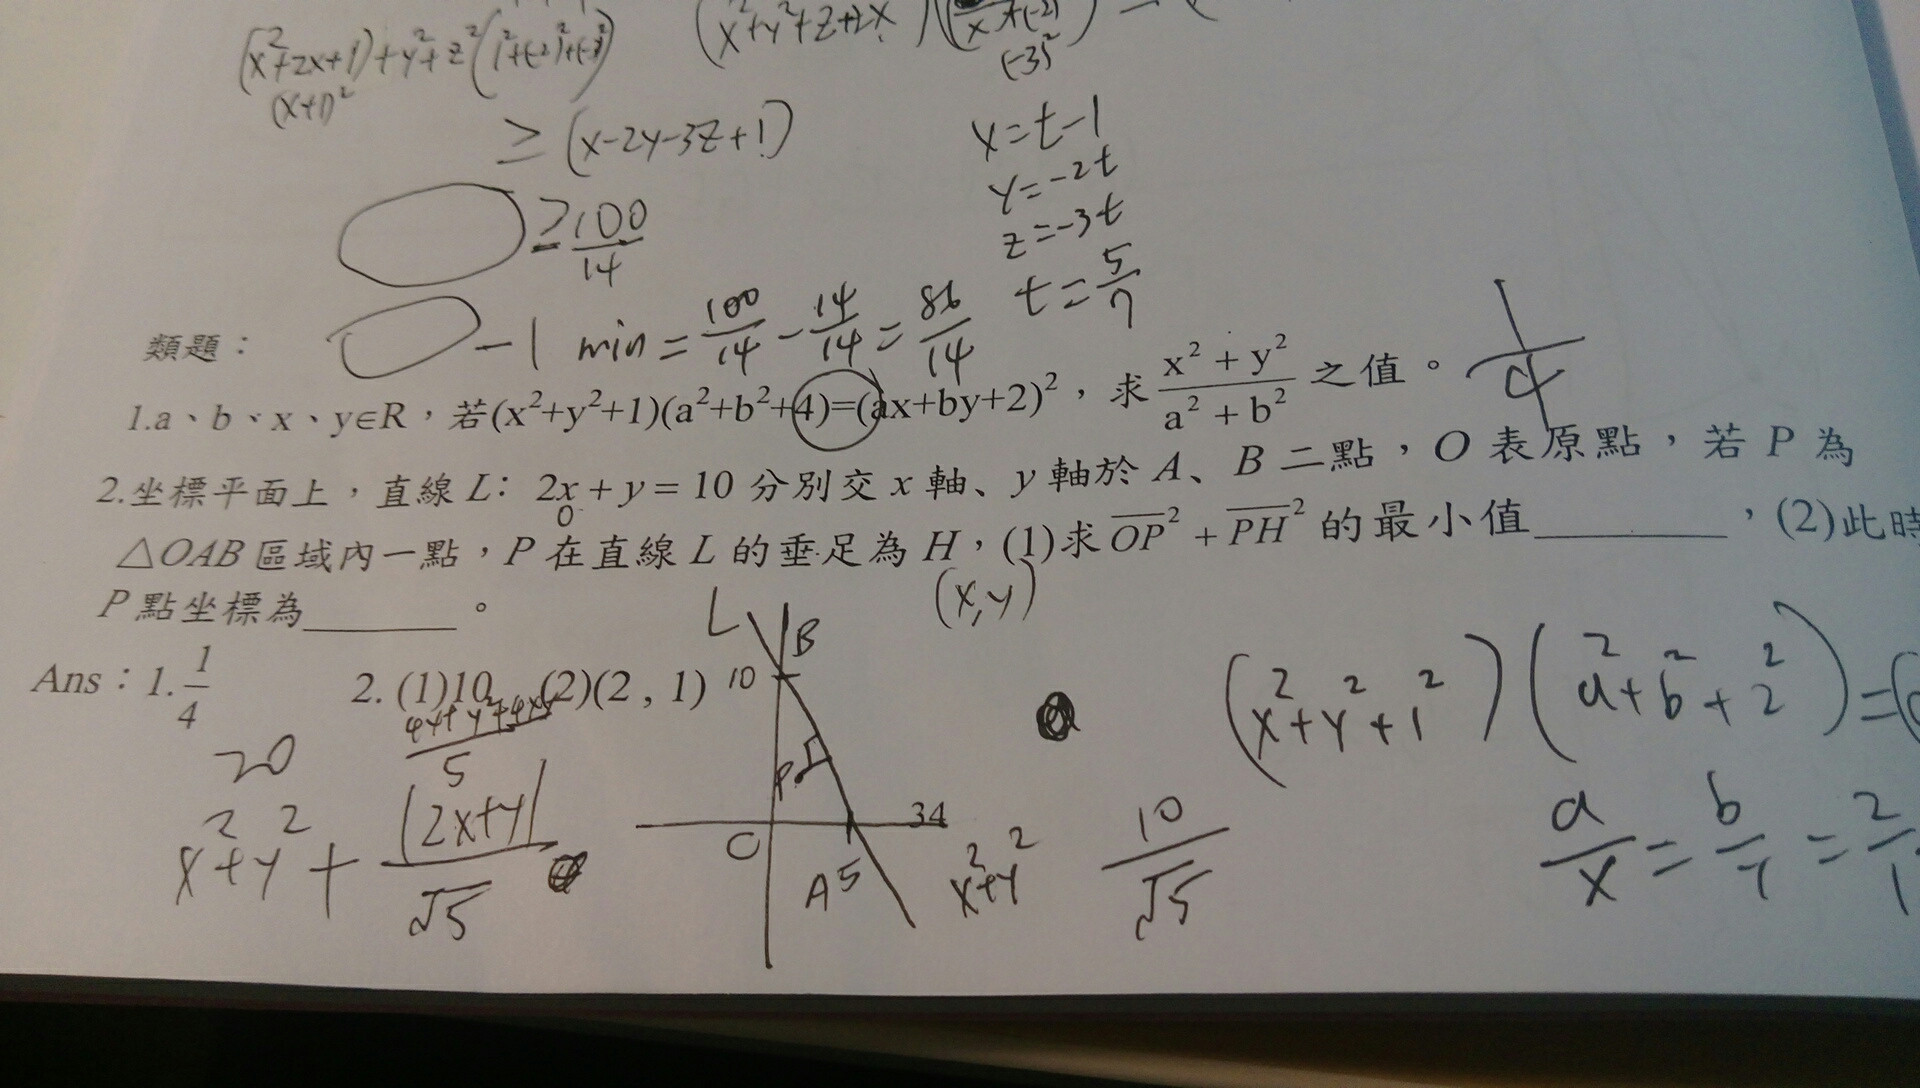 (x²+2x+1)+y²+z²(1²+(-2)²+(-3)²)
(x+1)²
(-3)²
≥(x-2y-3z+1)
x=t-1
y=-2t
z=-3t
t=5/7
≥100/14
-1 min=100/14-14/14=86/14
類題：
1.a、b、x、y∈R，若(x²+y²+1)(a²+b²+4)=(ax+by+2)²，求 (x²+y²)/(a²+b²) 之值。
2.坐標平面上，直線 L: 2x+y=10 分別交 x 軸、y 軸於 A、B 二點，O 表原點，若 P 為
△OAB 區域內一點，P 在直線 L 的垂足為 H，(1)求 \overline{OP}²+\overline{PH}² 的最小值________，(2)此時
P 點坐標為______。
0
(x,y)
L
B
10
P
O
A5
Ans：1. 1/4 2. (1)10 (2)(2,1)
20
5
x²+y²+|2x+y|/√5
34
x²+y²
10/√5
(x²+y²+1²)(a²+b²+2²)=(
a/x=b/y=2/1